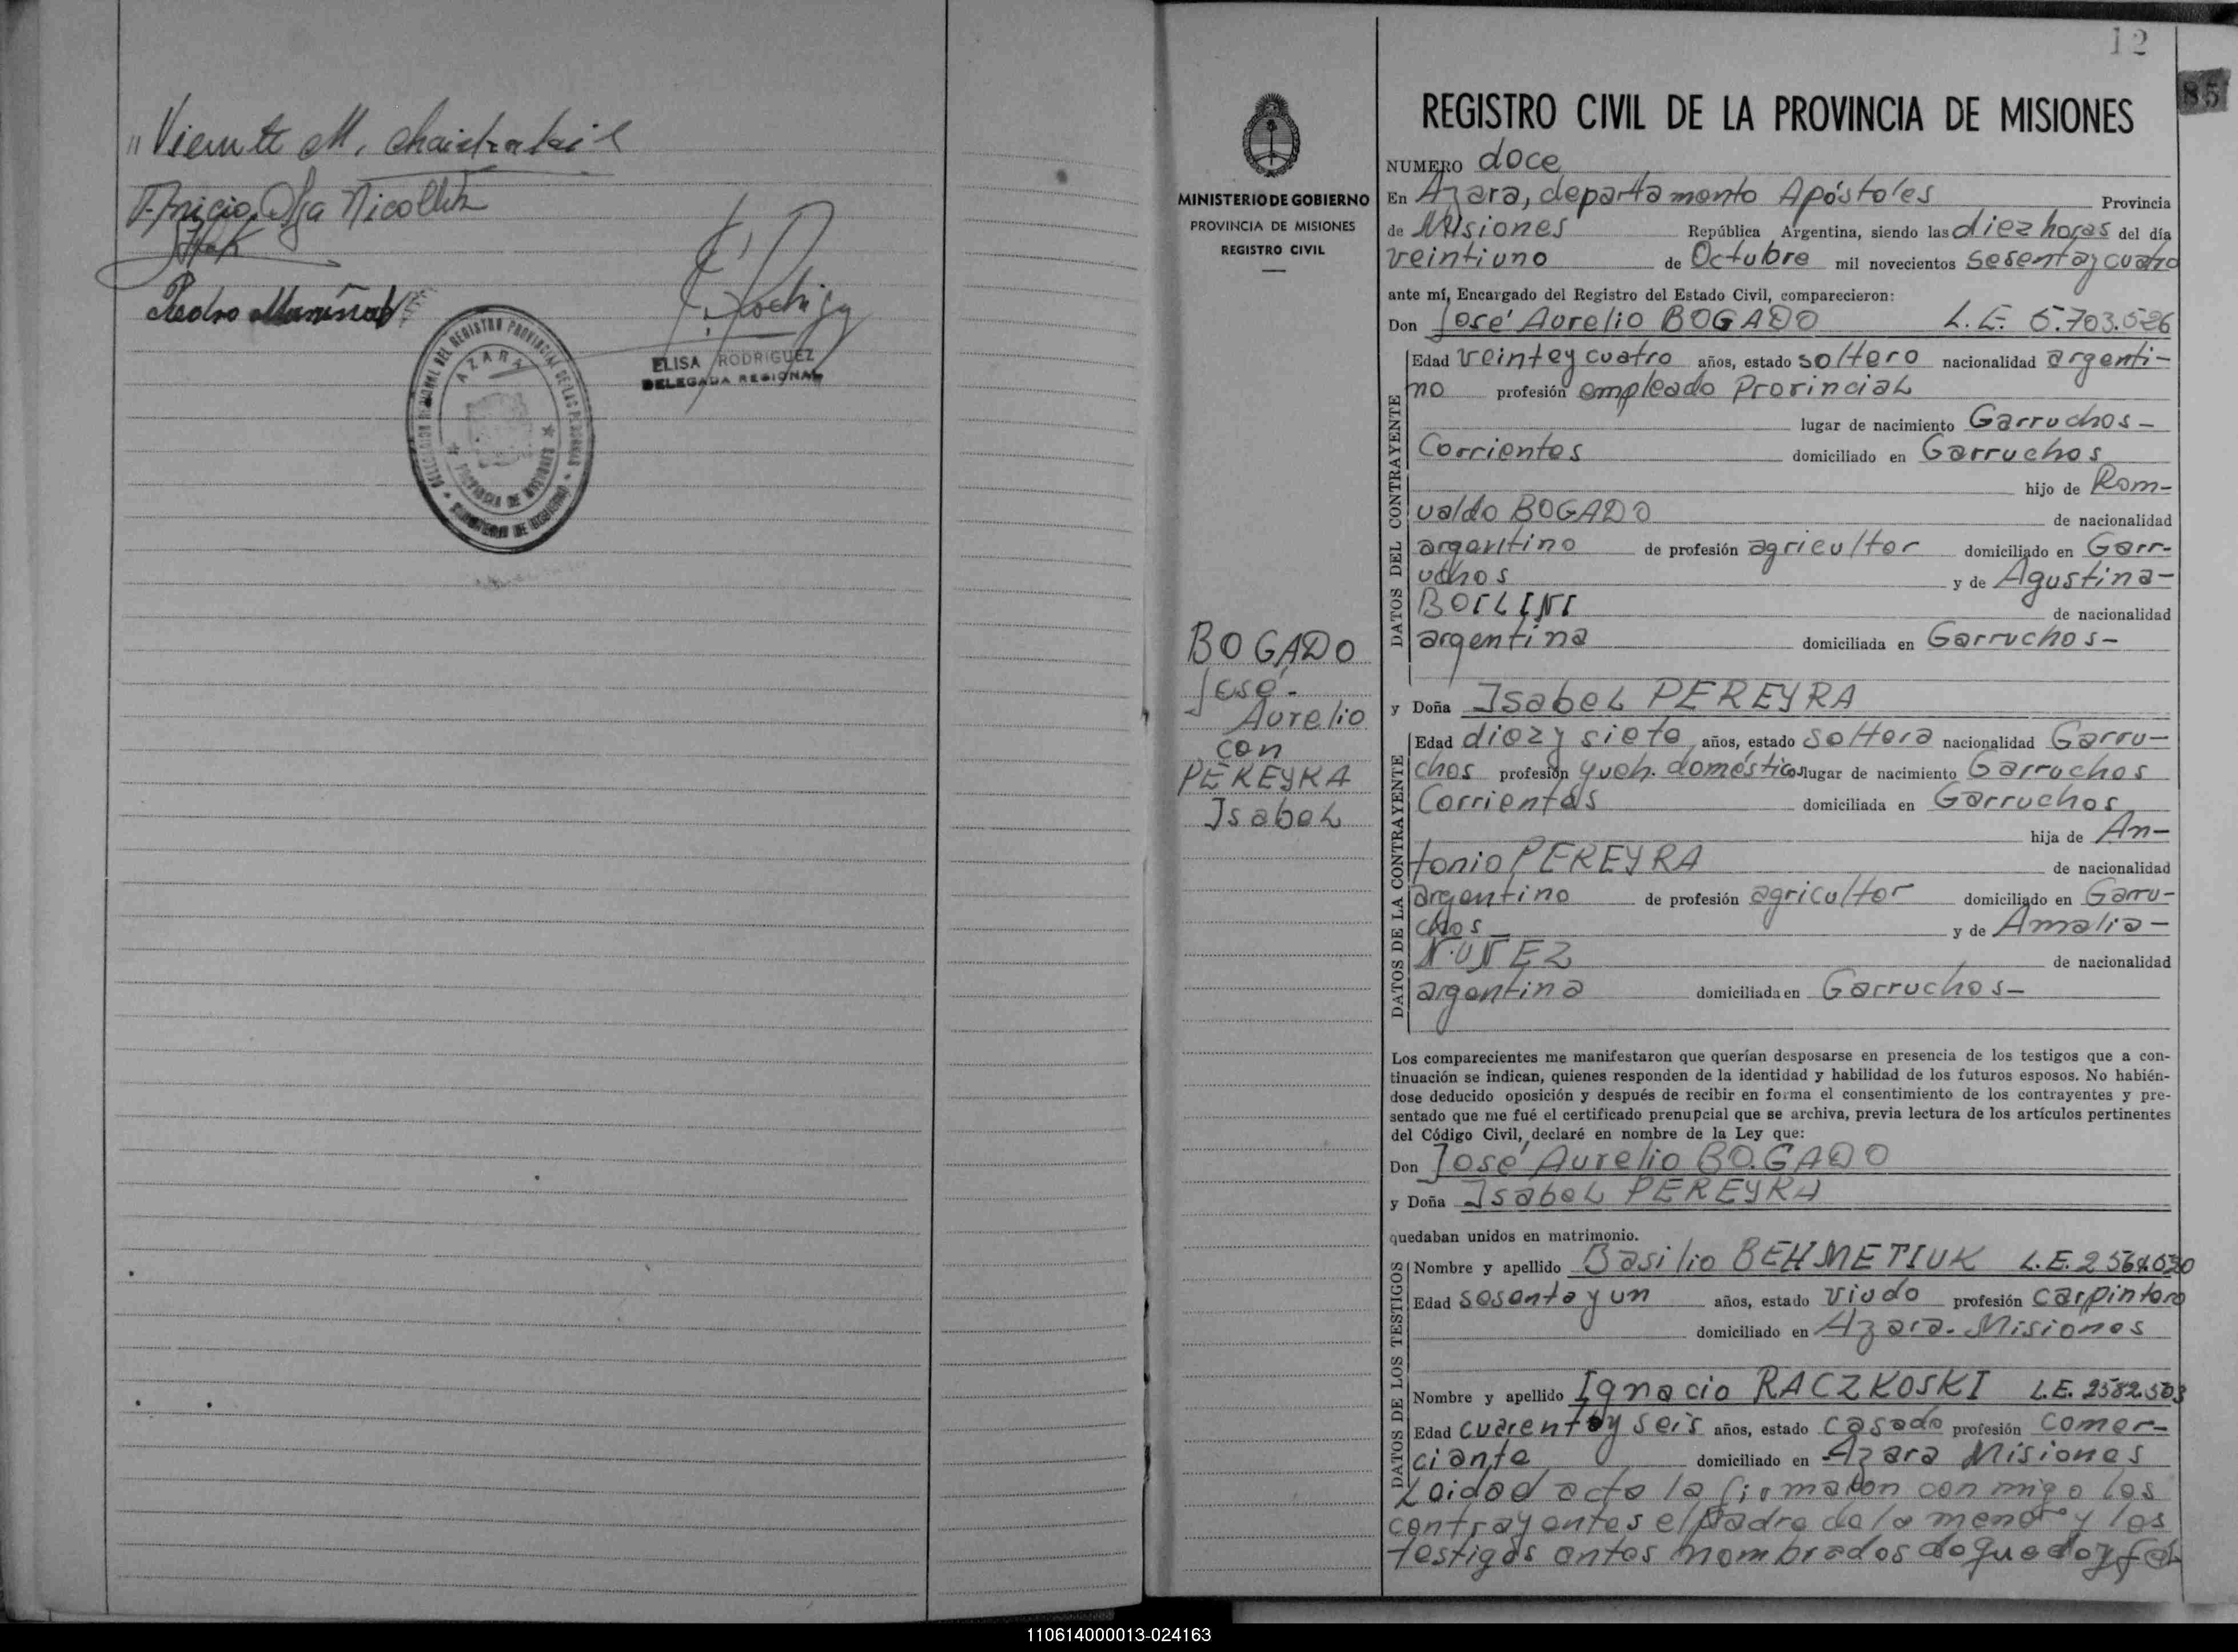 Pedro
ELISA RODRIGUEZ
DELEGADA REGIONAL
AZARA
PROVINCIA DE MISIONES
12
85
MINISTERIO DE GOBIERNO
PROVINCIA DE MISIONES
REGISTRO CIVIL
BOGADO
José
Aurelio
con
PEREYRA
Isabel
REGISTRO CIVIL DE LA PROVINCIA DE MISIONES
NUMERO doce
En Azara, departamento Apóstoles Provincia
de Misiones República Argentina, siendo las diez horas del día
veintiuno de Octubre mil novecientos sesenta y cuatro
ante mí, Encargado del Registro del Estado Civil, comparecieron:
Don José Aurelio BOGADO L.E. 5.703.526
DATOS DEL CONTRAYENTE
Edad veinte y cuatro años, estado soltero nacionalidad argenti-
no profesión empleado Provincial
lugar de nacimiento Garruchos-
Corrientes domiciliado en Garruchos
hijo de Rom-
ualdo BOGADO de nacionalidad
argentino de profesión agricultor domiciliado en Garr-
uchos y de Agustina-
de nacionalidad
argentina domiciliada en Garruchos-
y Doña Isabel PEREYRA
DATOS DE LA CONTRAYENTE
Edad diez y siete años, estado soltera nacionalidad Garru-
chos profesión queh. domésticos lugar de nacimiento Garruchos
Corrientes domiciliada en Garruchos
hija de An-
tonio PEREYRA de nacionalidad
argentino de profesión agricultor domiciliado en Garru-
chos y de Amalia-
NUÑEZ de nacionalidad
argentina domiciliada en Garruchos-
Los comparecientes me manifestaron que querían desposarse en presencia de los testigos que a con-
tinuación se indican, quienes responden de la identidad y habilidad de los futuros esposos. No habién-
dose deducido oposición y después de recibir en forma el consentimiento de los contrayentes y pre-
sentado que me fué el certificado prenupcial que se archiva, previa lectura de los artículos pertinentes
del Código Civil, declaré en nombre de la Ley que:
Don José Aurelio BOGADO
y Doña Isabel PEREYRA
quedaban unidos en matrimonio.
DATOS DE LOS TESTIGOS
Nombre y apellido Basilio BEHMETIUK L.E.
Edad sesenta y un años, estado viudo profesión carpintero
domiciliado en Azara-Misiones
Nombre y apellido Ignacio RACZKOSKI L.E. 2582.503
Edad cuarenta y seis años, estado casado profesión comer-
ciante domiciliado en Azara Misiones
Leidad acta la firmaron con migo los
contrayentes el padre de la menor y los
testigos antes nombrados de que doy fe
110614000013-024163